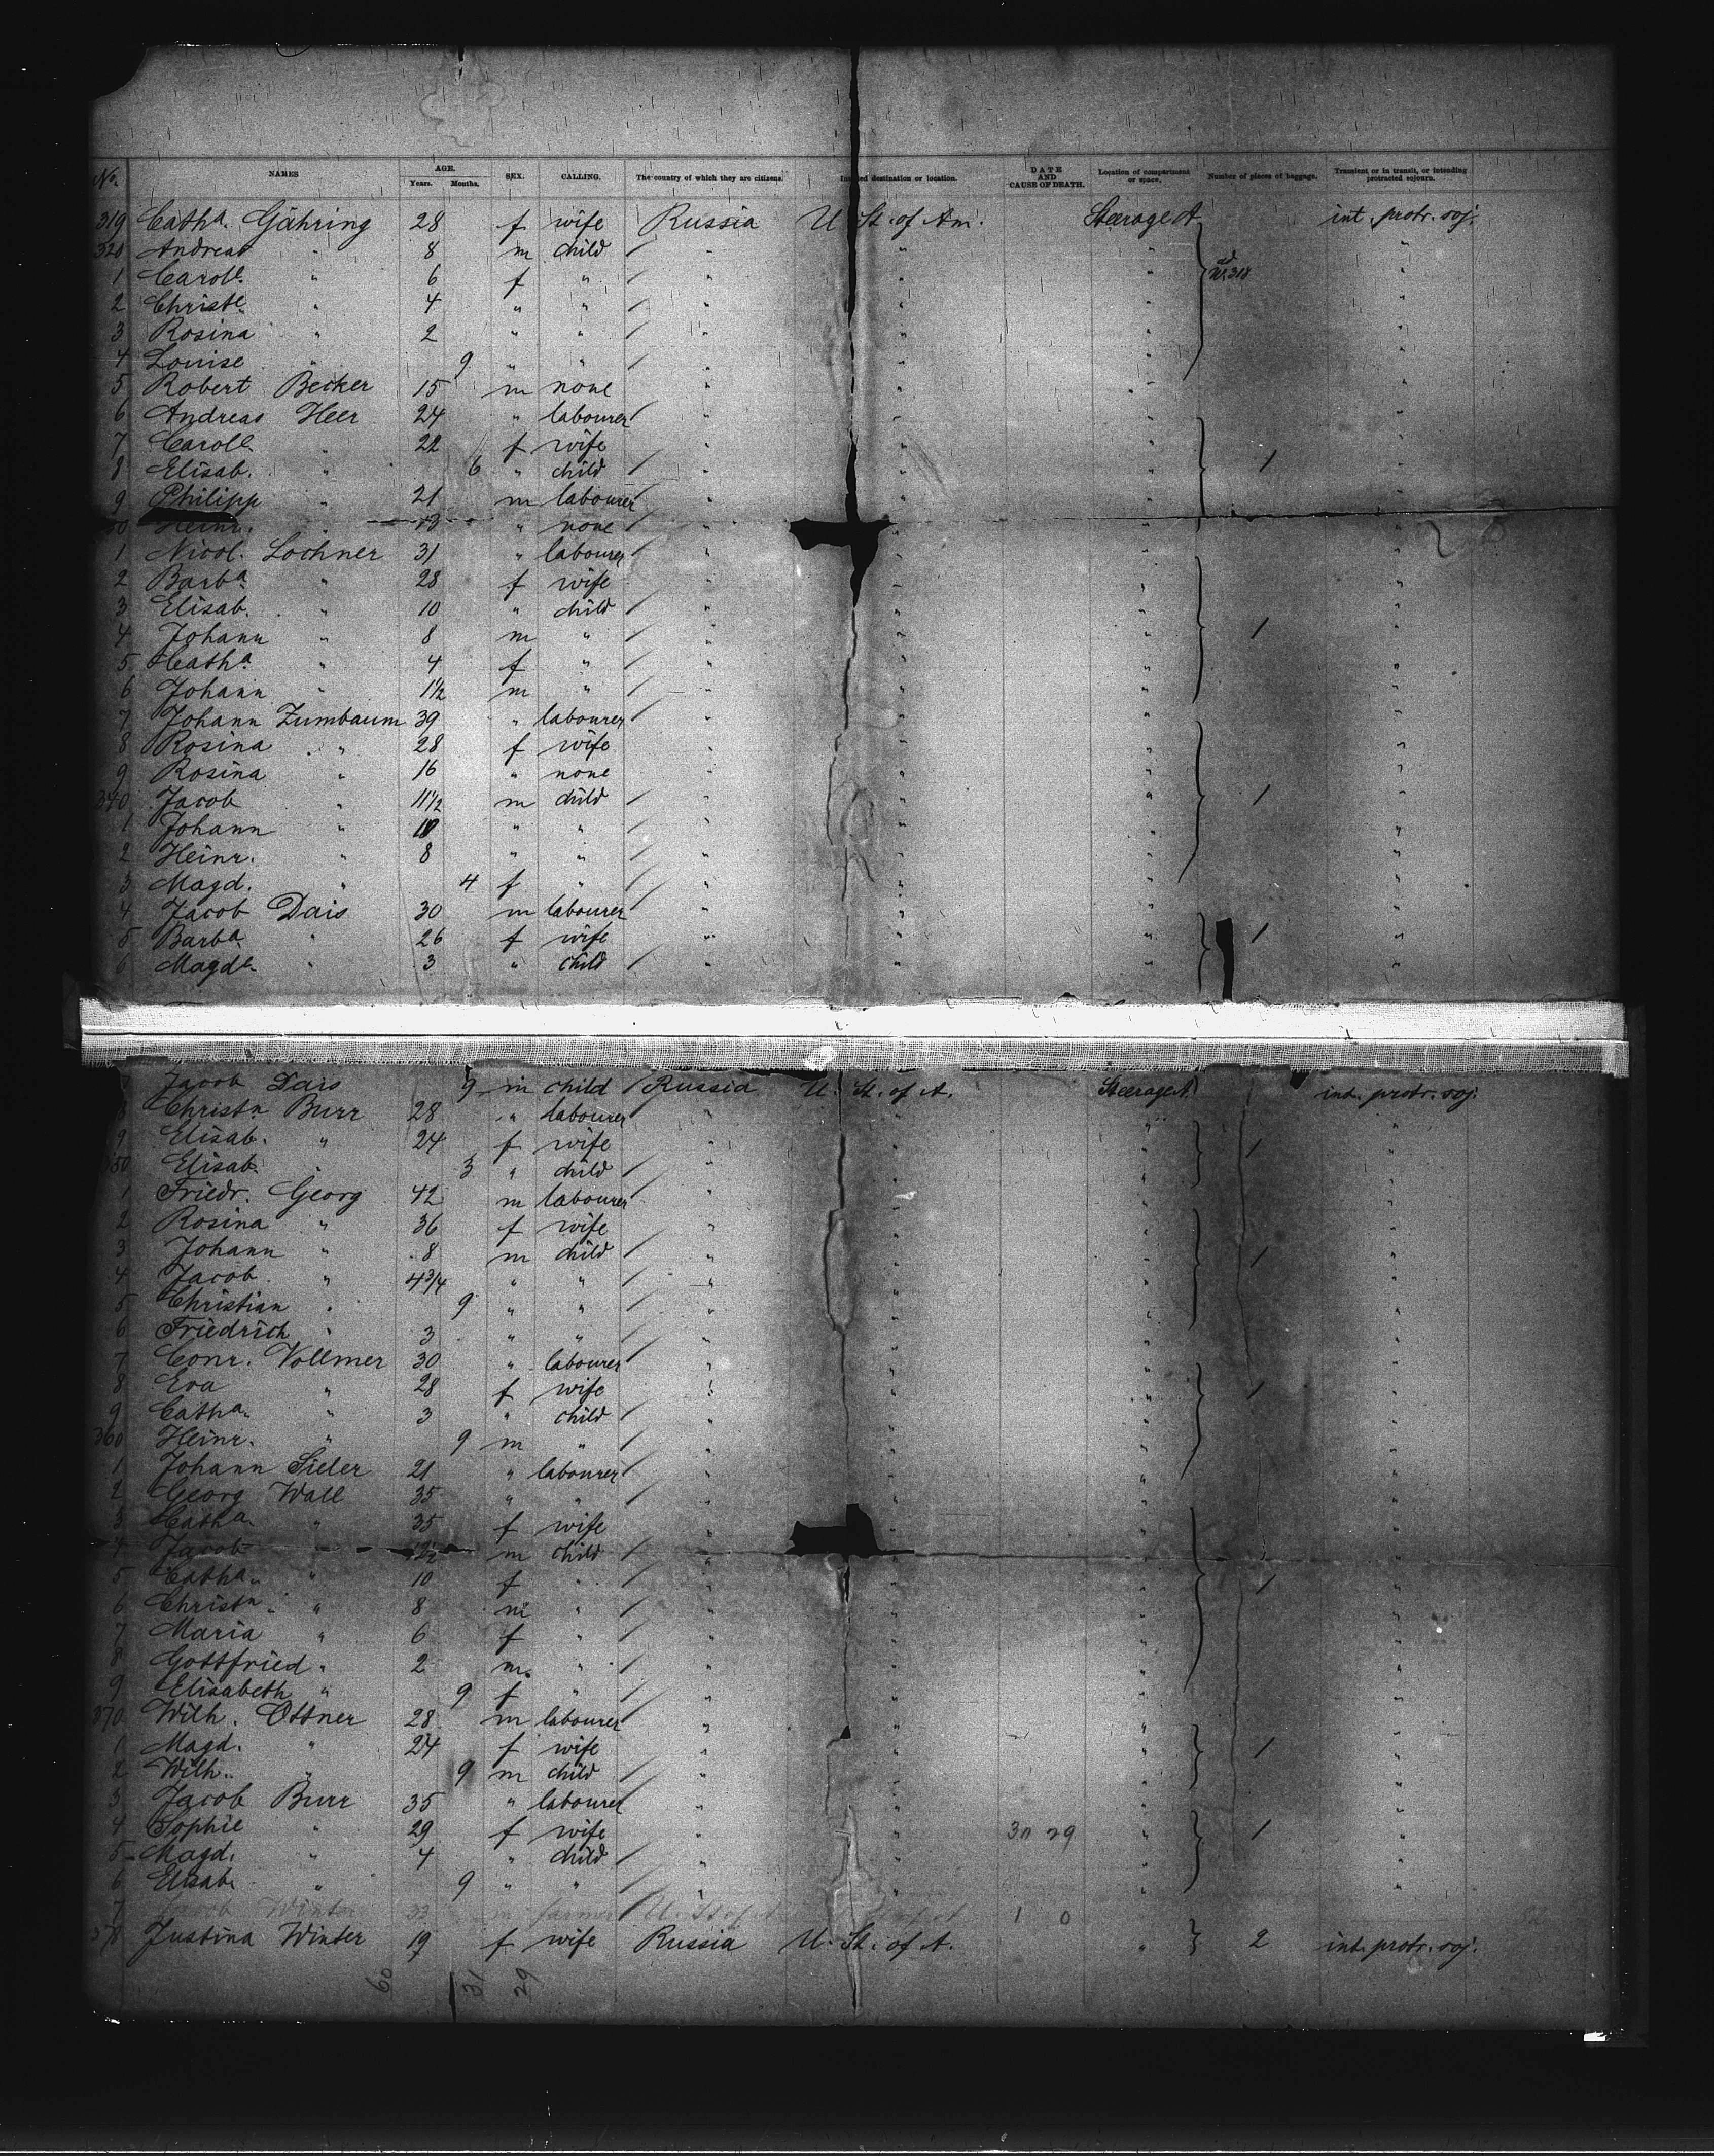 No. NAMES AGE. Years. Months. SEX. CALLING. The country of which they are citizens. Intended destination or location. DATE AND CAUSE OF DEATH. Location of compartment or space. Number of pieces of baggage. Transient or in transit, or intending protracted sojourn.
319 Cathª. Gähring 28 f wife Russia U. St. of Am. Steerage A int. protr. soj.
320 Andreas " 8 m child / " " " "
1 Carolᵉ. " 6 f " / " " " " 318
2 Christᵉ. " 4 " " / " " " "
3 Rosina " 2 " " / " " " "
4 Louise " 9 " " / " " " "
5 Robert Becker 15 m none " " " "
6 Andreas Heer 24 " labourer / " " " "
7 Carolᵉ. " 22 f wife " " " "
8 Elisab. " 6 " child / " " " 1 "
9 Philipp " 21 m labourer / " " " "
30 Heinr. " 13 " none " " " "
1 Nicol. Lochner 31 " labourer / " " " "
2 Barbª. " 28 f wife " " " "
3 Elisab. " 10 " child / " " " "
4 Johann " 8 m " / " " " 1 "
5 Cathª. " 4 f " / " " " "
6 Johann " 1½ m " / " " " "
7 Johann Zumbaum 39 " labourer / " " " "
8 Rosina " 28 f wife " " " "
9 Rosina " 16 " none " " " "
340 Jacob " 11½ m child / " " " 1 "
1 Johann " 10 " " / " " " "
2 Heinr. " 8 " " / " " " "
3 Magd. " 4 f " / " " " "
4 Jacob Dais 30 m labourer " " " "
5 Barbª. " 26 f wife " " " 1 "
6 Magdᵉ. " 3 " child / " " " "
7 Jacob Dais 9 m child / Russia U. St. of A. Steerage A int. protr. soj.
8 Christⁿ Burr 28 " labourer " " " "
9 Elisab. " 24 f wife " " " 1 "
350 Elisab. " 3 " child / " " " "
1 Friedr. Georg 42 m labourer " " " "
2 Rosina " 36 f wife " " " "
3 Johann " 8 m child / " " " 1 "
4 Jacob " 4¾ " " / " " " "
5 Christian " 9 " " / " " " "
6 Friedrich " 3 " " / " " " "
7 Conr. Vollmer 30 " labourer / " " " "
8 Eva " 28 f wife " " " 1 "
9 Cathª. " 3 " child / " " " "
360 Heinr. " 9 m " / " " " "
1 Johann Sieler 21 " labourer / " " " "
2 Georg Wall 35 " " / " " " "
3 Cathª. " 35 f wife " " " "
4 Jacob " m child / " " " "
5 Cathª. " 10 f " / " " " 1 "
6 Christⁿ. " 8 m " / " " " "
7 Maria " 6 f " / " " " "
8 Gottfried " 2 m. " / " " " "
9 Elisabeth " 9 f " / " " " "
370 Wilh. Ottner 28 m labourer " " " "
1 Magd. " 24 f wife " " " 1 "
2 Wilh. " 9 m child / " " " "
3 Jacob Burr 35 " labourer " " " "
4 Sophie " 29 f wife " " 30 29 " 1 "
5 Magd. " 4 " child / " " " "
6 Elisab. " 9 " " / " " " "
7 Jacob Winter 33 m farmer / U. St of A. 1 0
378 Justina Winter 19 f wife Russia U. St. of A. " 2 int. protr. soj.
60 31 29